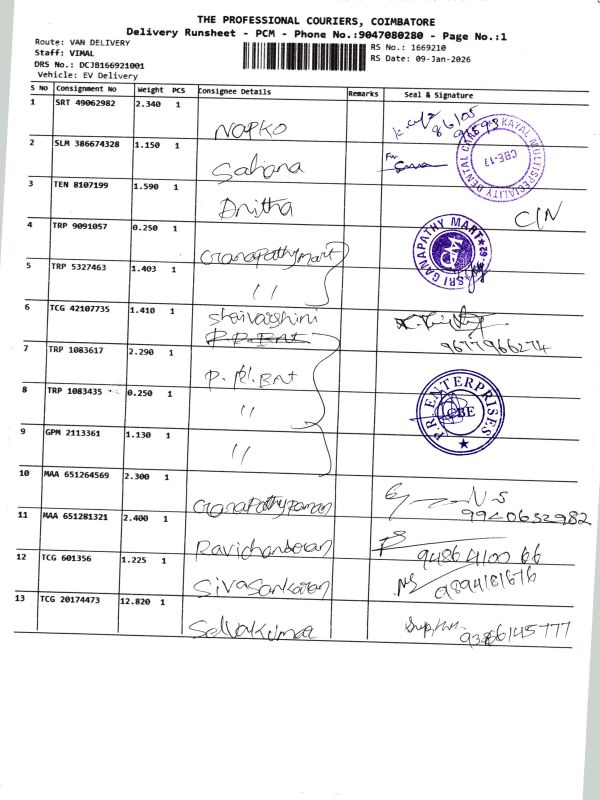 THE PROFESSIONAL COURIERS, COIMBATORE
Delivery Runsheet - PCM - Phone No.:9047080280 - Page No.:1
Route: VAN DELIVERY
Staff: VIMAL
DRS No.: DCJB166921001
Vehicle: EV Delivery
RS No.: 1669210
RS Date: 09-Jan-2026
S No Consignment No Weight PCS Consignee Details Remarks Seal & Signature
1 SRT 49062982 2.340 1 NAPKO
2 SLM 386674328 1.150 1 Sahana For
KAYAL MULTISPECIALITY DENTAL CARE CBE-17
3 TEN 8107199 1.590 1 Anitha C/N
4 TRP 9091057 0.250 1 Ganapathy mart
SRI GANAPATHY MART
5 TRP 5327463 1.403 1 "
6 TCG 42107735 1.410 1 Shrivarshini
9677966274
7 TRP 1083617 2.290 1 P.R.Ent
8 TRP 1083435 0.250 1 "
P.R. ENTERPRISES CBE
9 GPM 2113361 1.130 1 "
10 MAA 651264569 2.300 1 Ganapathyraman
9940632982
11 MAA 651281321 2.400 1 Ravichandran 9486410066
12 TCG 601356 1.225 1 Sivasankaran 9894181676
13 TCG 20174473 12.820 1 Selvakumar 9386145777